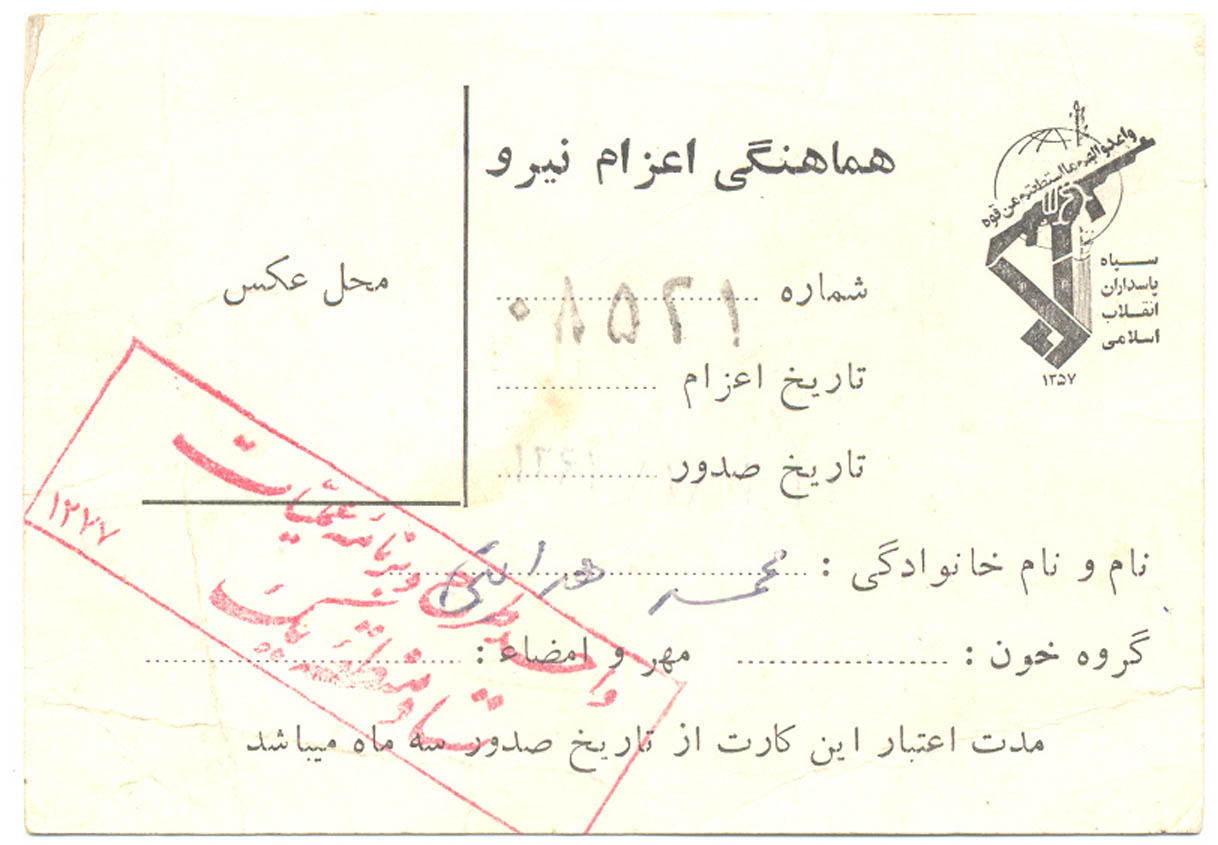 هماهنگی اعزام نیرو
واعدوا لهم ما استطعتم من قوه
سپاه
پاسداران
انقلاب
اسلامی
۱۳۵۷
محل عکس
شماره ۰۸۵۲۱
تاریخ اعزام
تاریخ صدور ۱۳۶۱
نام و نام خانوادگی : محمد
گروه خون :
مهر و امضاء :
مدت اعتبار این کارت از تاریخ صدور سه ماه میباشد
واحد طرح و برنامه عملیات
ستاد منطقه
۱۲۷۷